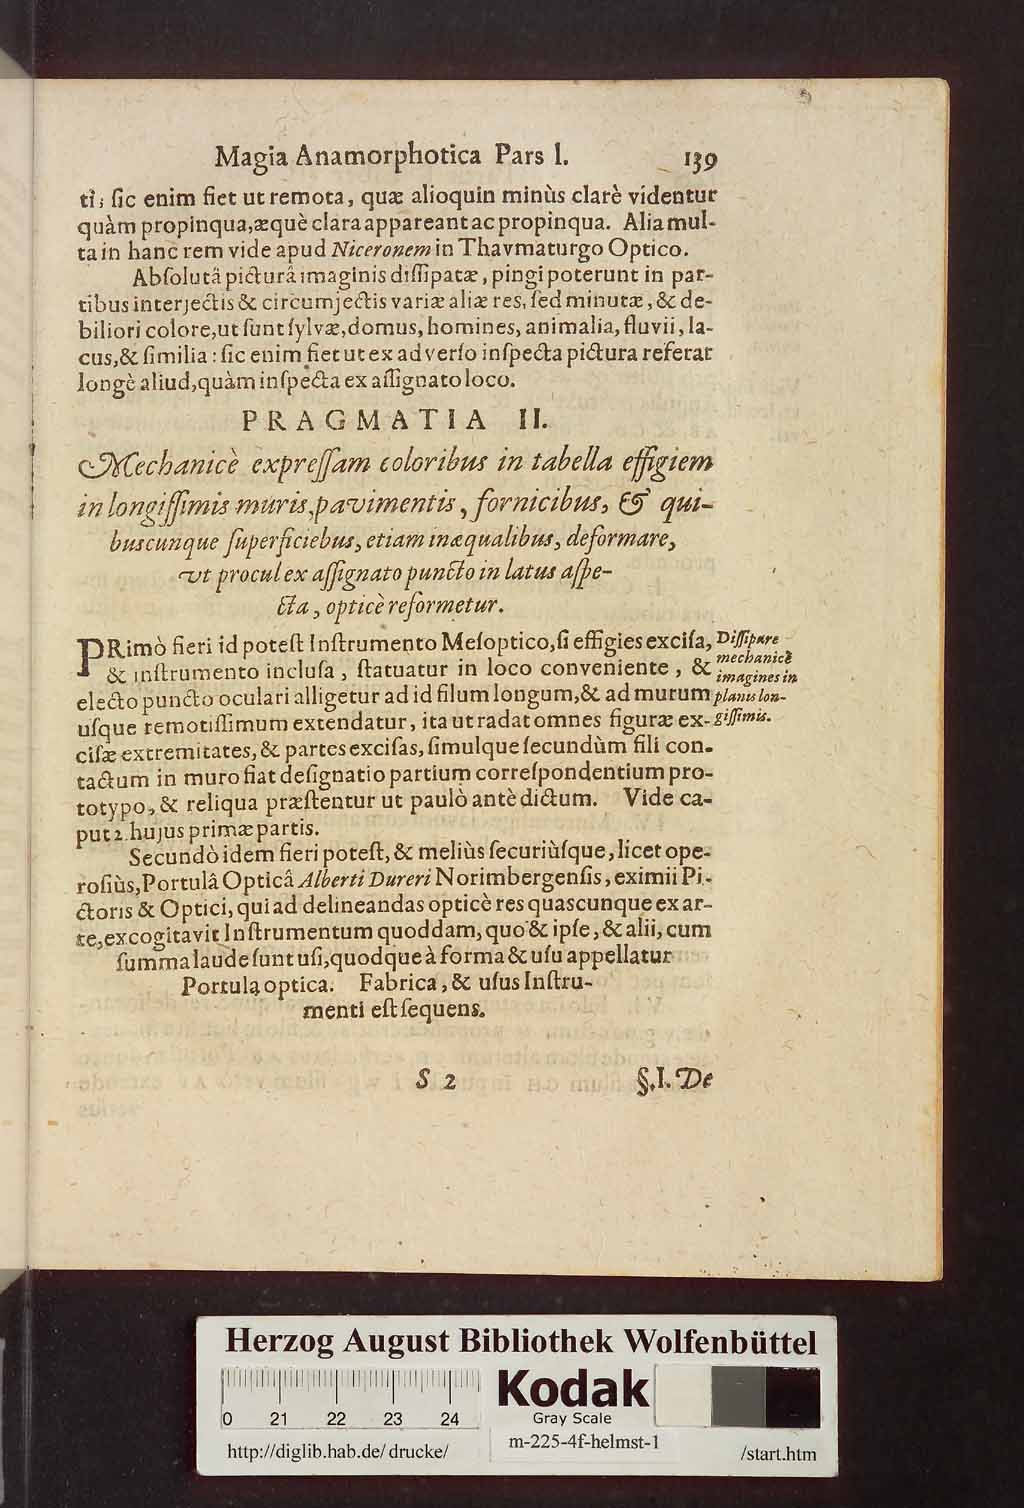 Magia Anamorphotica Pars I. 139
ti; ſic enim fiet ut remota, quæ alioquin minùs clarè videntur
quàm propinqua,æquè clara appareant ac propinqua. Alia mul-
ta in hanc rem vide apud Niceronem in Thavmaturgo Optico.
Abſolutâ picturâ imaginis diſſipatæ, pingi poterunt in par-
tibus interjectis & circumjectis variæ aliæ res, ſed minutæ, & de-
biliori colore,ut ſunt ſylvæ,domus, homines, animalia, fluvii, la-
cus,& ſimilia: ſic enim fiet ut ex adverſo inſpecta pictura referat
longè aliud,quàm inſpecta ex aſſignato loco.
PRAGMATIA II.
Mechanicè expreſſam coloribus in tabella effigiem
in longiſſimis muris,pavimentis, fornicibus, & qui-
buscunque ſuperficiebus, etiam inæqualibus, deformare,
ut procul ex aſſignato puncto in latus aſpe-
cta, opticè reformetur.
PRimò fieri id poteſt Inſtrumento Meſoptico,ſi effigies exciſa,
& inſtrumento incluſa, ſtatuatur in loco conveniente, &
electo puncto oculari alligetur ad id filum longum,& ad murum
uſque remotiſſimum extendatur, ita ut radat omnes figuræ ex-
ciſæ extremitates, & partes exciſas, ſimulque ſecundùm fili con-
tactum in muro fiat deſignatio partium correſpondentium pro-
totypo, & reliqua præſtentur ut paulò antè dictum. Vide ca-
put 2. hujus primæ partis.
Diſſipare
mechanicè
imagines in
planis lon-
giſſimis.
Secundò idem fieri poteſt, & meliùs ſecuriùſque, licet ope-
roſiùs,Portulâ Opticâ Alberti Dureri Norimbergenſis, eximii Pi-
ctoris & Optici, qui ad delineandas opticè res quascunque ex ar-
te,excogitavit Inſtrumentum quoddam, quo & ipſe, & alii, cum
ſumma laude ſunt uſi,quodque à forma & uſu appellatur
Portula optica. Fabrica, & uſus Inſtru-
menti eſt ſequens.
S 2 §.I. De
Herzog August Bibliothek Wolfenbüttel
0 21 22 23 24
Kodak
Gray Scale
http://diglib.hab.de/drucke/ m-225-4f-helmst-1 /start.htm